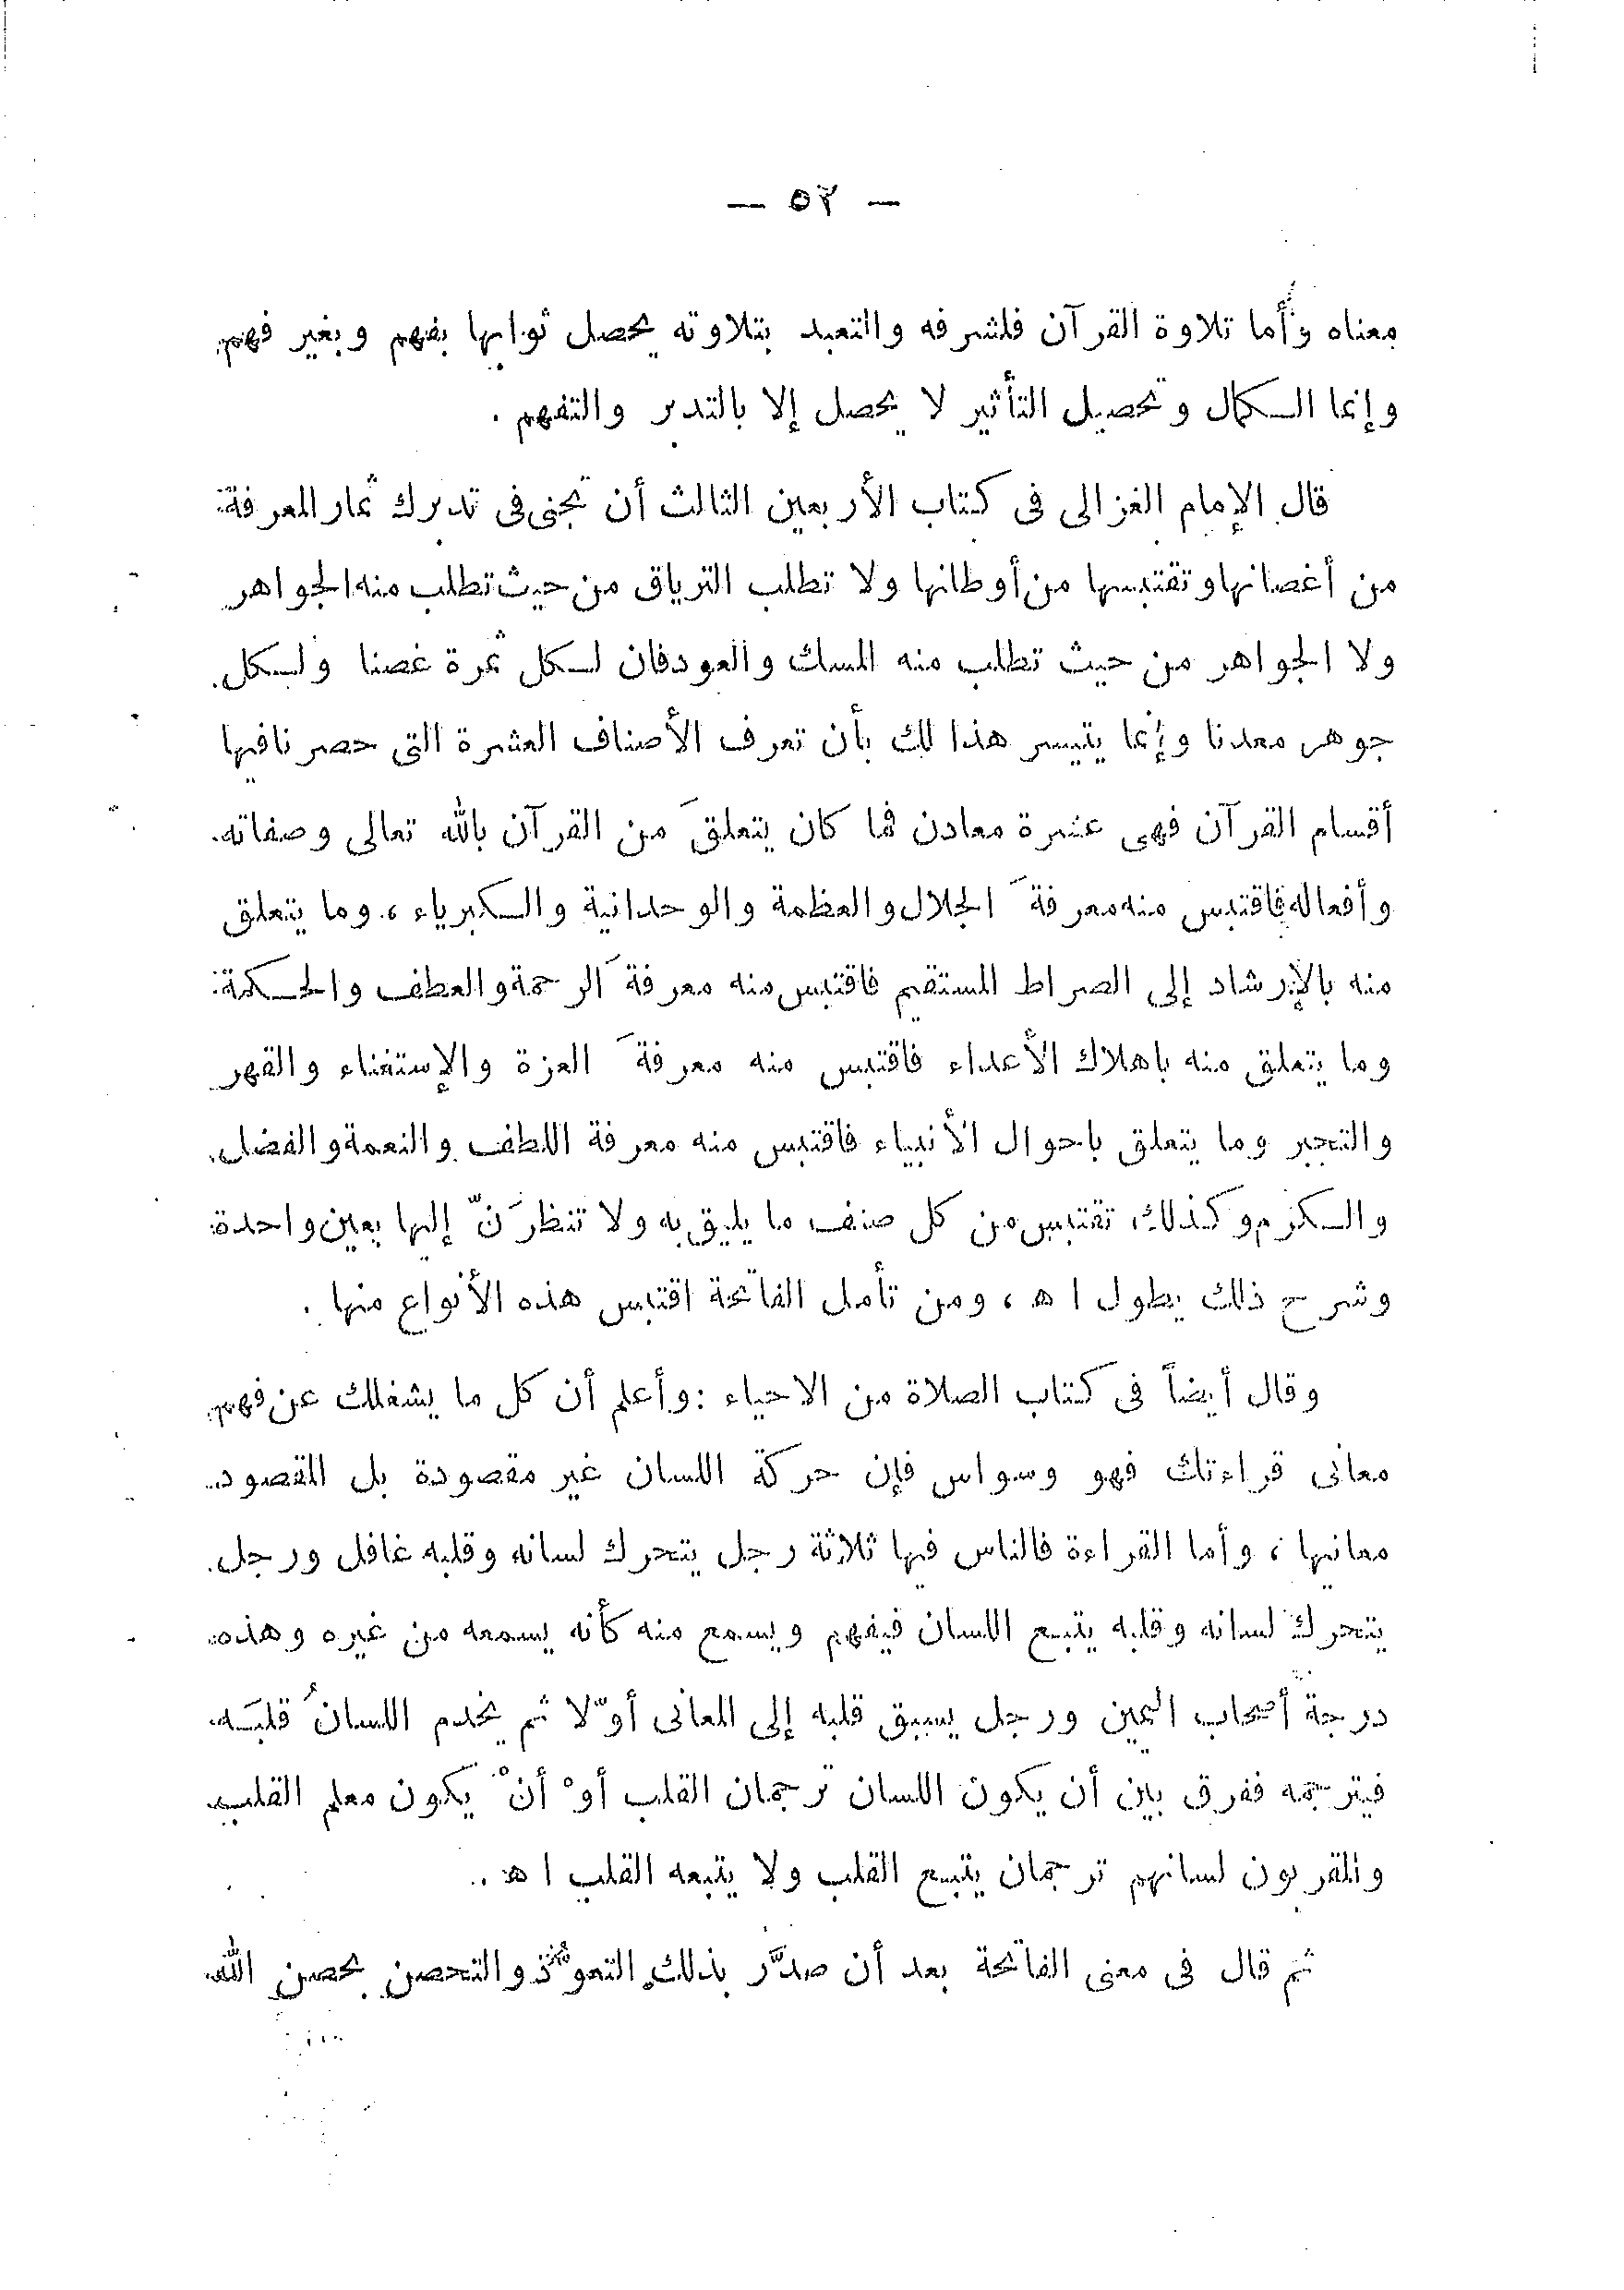 — ٥٢ —
معناه وأما تلاوة القرآن فلشرفه والتعبد بتلاوته يحصل ثوابها بفهم وبغير فهم
وإنما الكمال وتحصيل التأثير لا يحصل إلا بالتدبر والتفهم .
قال الإمام الغزالى فى كتاب الأربعين الثالث أن تجنى فى تدبرك ثمار المعرفة
من أغصانها وتقتبسها من أوطانها ولا تطلب الترياق من حيث تطلب منه الجواهر
ولا الجواهر من حيث تطلب منه المسك والعود فان لكل ثمرة غصنا ولكل
جوهر معدنا وإنما يتيسر هذا لك بأن تعرف الأصناف العشرة التى حصرنا فيها
أقسام القرآن فهى عشرة معادن فما كان يتعلق من القرآن بالله تعالى وصفاته
وأفعاله فاقتبس منه معرفة الجلال والعظمة والوحدانية والكبرياء ، وما يتعلق
منه بالإرشاد إلى الصراط المستقيم فاقتبس منه معرفة الرحمة والعطف والحكمة
وما يتعلق منه باهلاك الأعداء فاقتبس منه معرفة العزة والإستغناء والقهر
والتجبر وما يتعلق باحوال الأنبياء فاقتبس منه معرفة اللطف والنعمة والفضل
والكرم وكذلك تقتبس من كل صنف ما يليق به ولا تنظرَنّ إليها بعين واحدة
وشرح ذلك يطول ا هـ ، ومن تأمل الفاتحة اقتبس هذه الأنواع منها .
وقال أيضاً فى كتاب الصلاة من الاحياء : وأعلم أن كل ما يشغلك عن فهم
معانى قراءتك فهو وسواس فإن حركة اللسان غير مقصودة بل المقصود
معانيها ، وأما القراءة فالناس فيها ثلاثة رجل يتحرك لسانه وقلبه غافل ورجل
يتحرك لسانه وقلبه يتبع اللسان فيفهم ويسمع منه كأنه يسمعه من غيره وهذه
درجة أصحاب اليمين ورجل يسبق قلبه إلى المعانى أوّلا ثم يخدم اللسانُ قلبَه
فيترجمه ففرق بين أن يكون اللسان ترجمان القلب أوْ أنْ يكون معلم القلب
والمقربون لسانهم ترجمان يتبع القلب ولا يتبعه القلب ا هـ .
ثم قال فى معنى الفاتحة بعد أن صدَّر بذلك التعوُّذ والتحصن بحصن الله